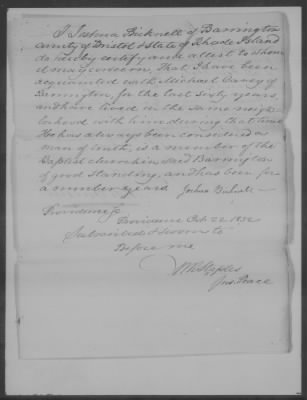 I Joshua Bicknell of Barrington
county of Bristol & state of Rhode Island
do hereby certify and attest to whom
it may concern, that I have been
acquainted with Michael Carey of
Barrington, for the last sixty years,
and have lived in the same neigh-
borhood with him during that time
He has always been considered a
man of truth, is a member of the
Baptist church in said Barrington
of good standing, and has been for
a number years Joshua Bicknell
Providence Sc
Providence Oct 22 1832
Subscribed & sworn to
Before me
Wm Staples
Jus. Peace